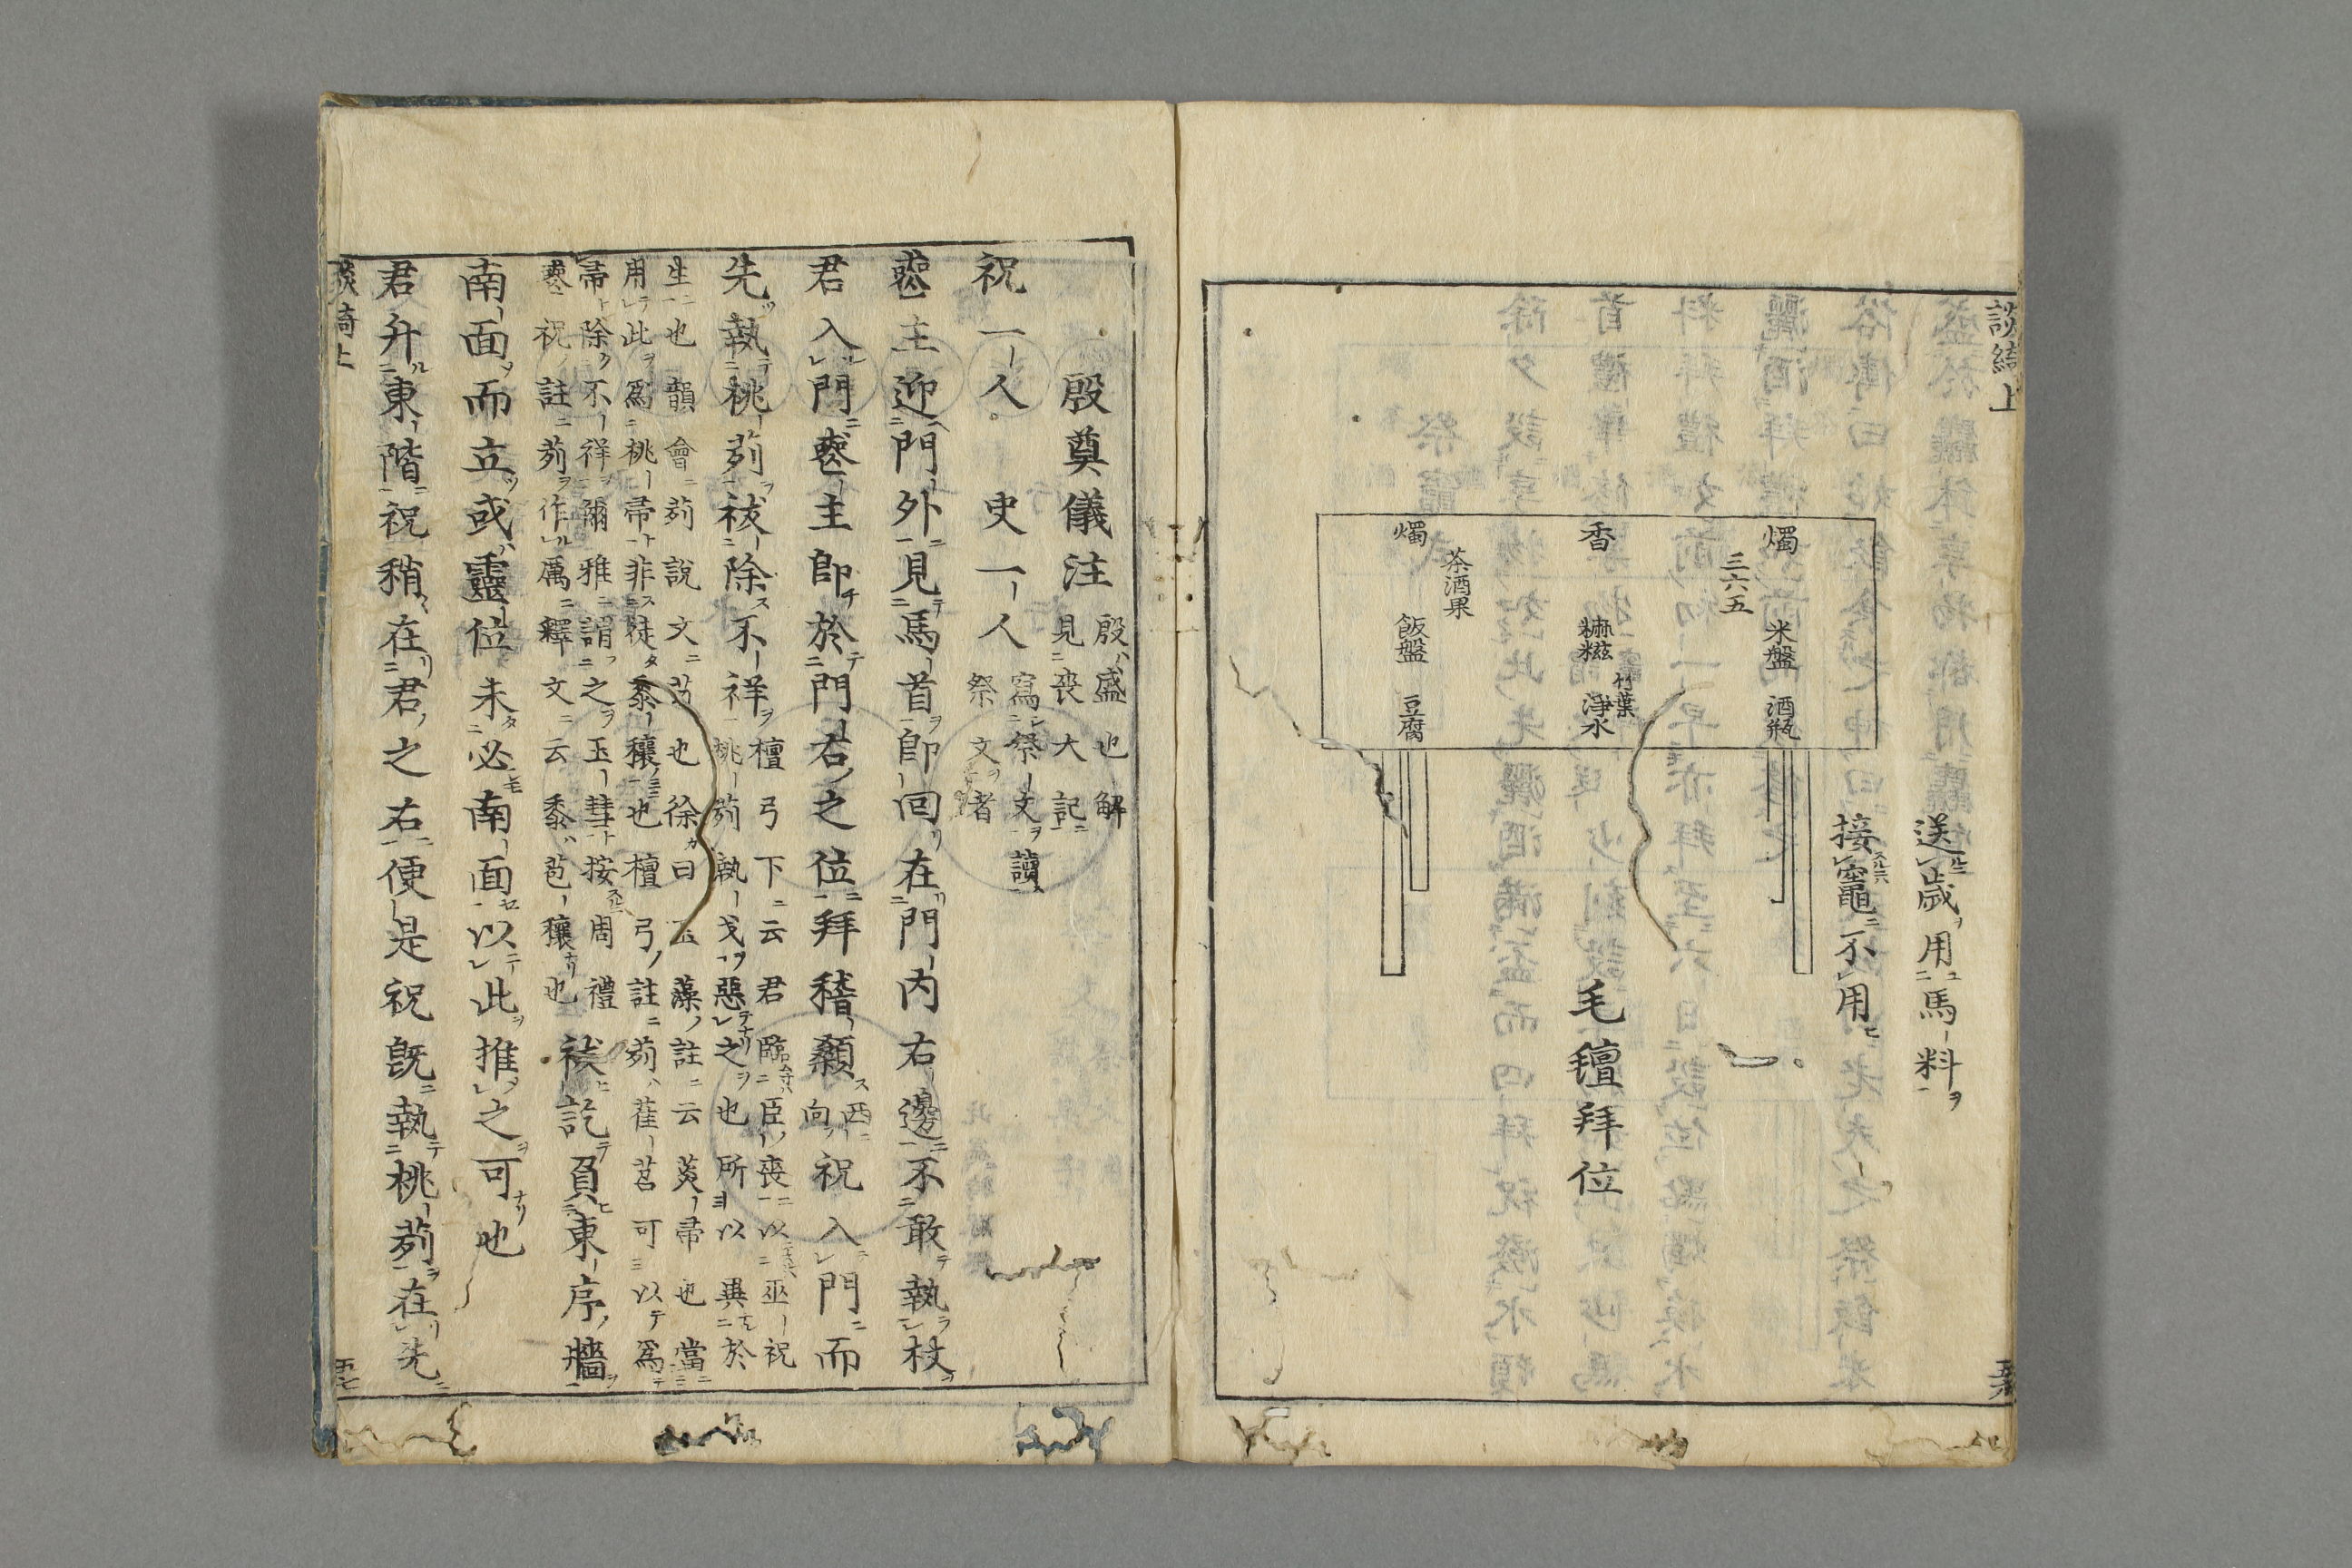 談綺上
送歳用馬料
接竈不用
燭
米盤
酒瓶
三六五
香
糍
竹葉
淨水
茶酒果
燭
飯盤
豆腐
毛氊拜位
殷奠儀注
殷盛也解
見喪大記
祝一人
史一人
寫祭文讀
祭文者
喪主迎門外見馬首卽回在門内右邊不敢執杖
君入門喪主卽於門右之位拜稽顙
西
向
祝入門而
先執桃茢祓除不祥
檀弓下云君臨臣喪以巫祝
桃茢執戈惡之也所以異於
生也韻會茢說文芀也徐曰玉藻註云茢帚也當
用此爲桃帚非徒黍穰也檀弓註茢萑苕可以爲
帚除不祥爾雅謂之玉彗按周禮
喪祝註茢作厲釋文云黍苞穰也
祓訖負東序牆
南面而立或靈位未必南面以此推之可也
君升東階祝稍在君之右便是祝既執桃茢在先
談綺上
五七